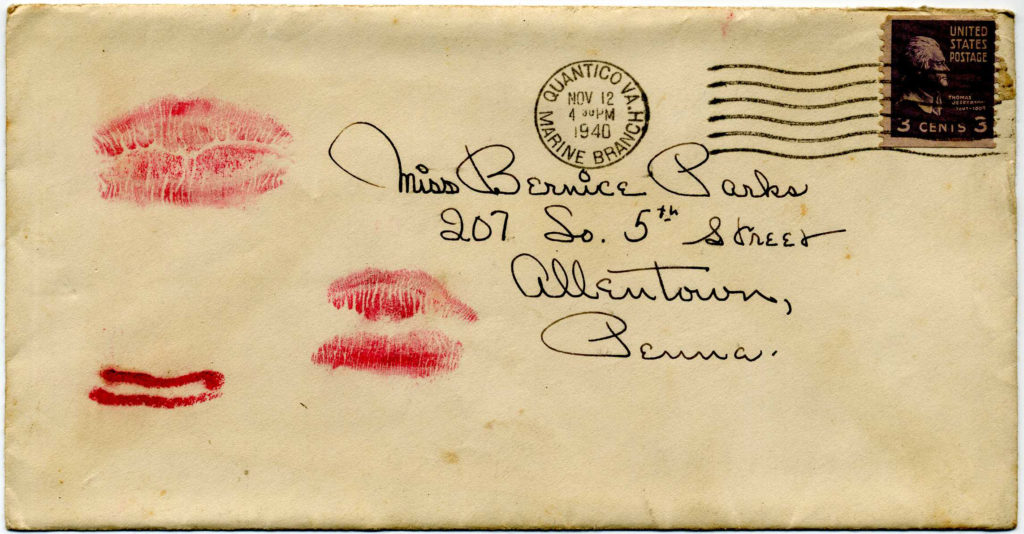 QUANTICO VA.
NOV 12
4 30 PM
1940
MARINE BRANCH
UNITED
STATES
POSTAGE
THOMAS
JEFFERSON
3 CENTS 3
Miss Bernice Parks
207 So. 5th Street
Allentown,
Penna.